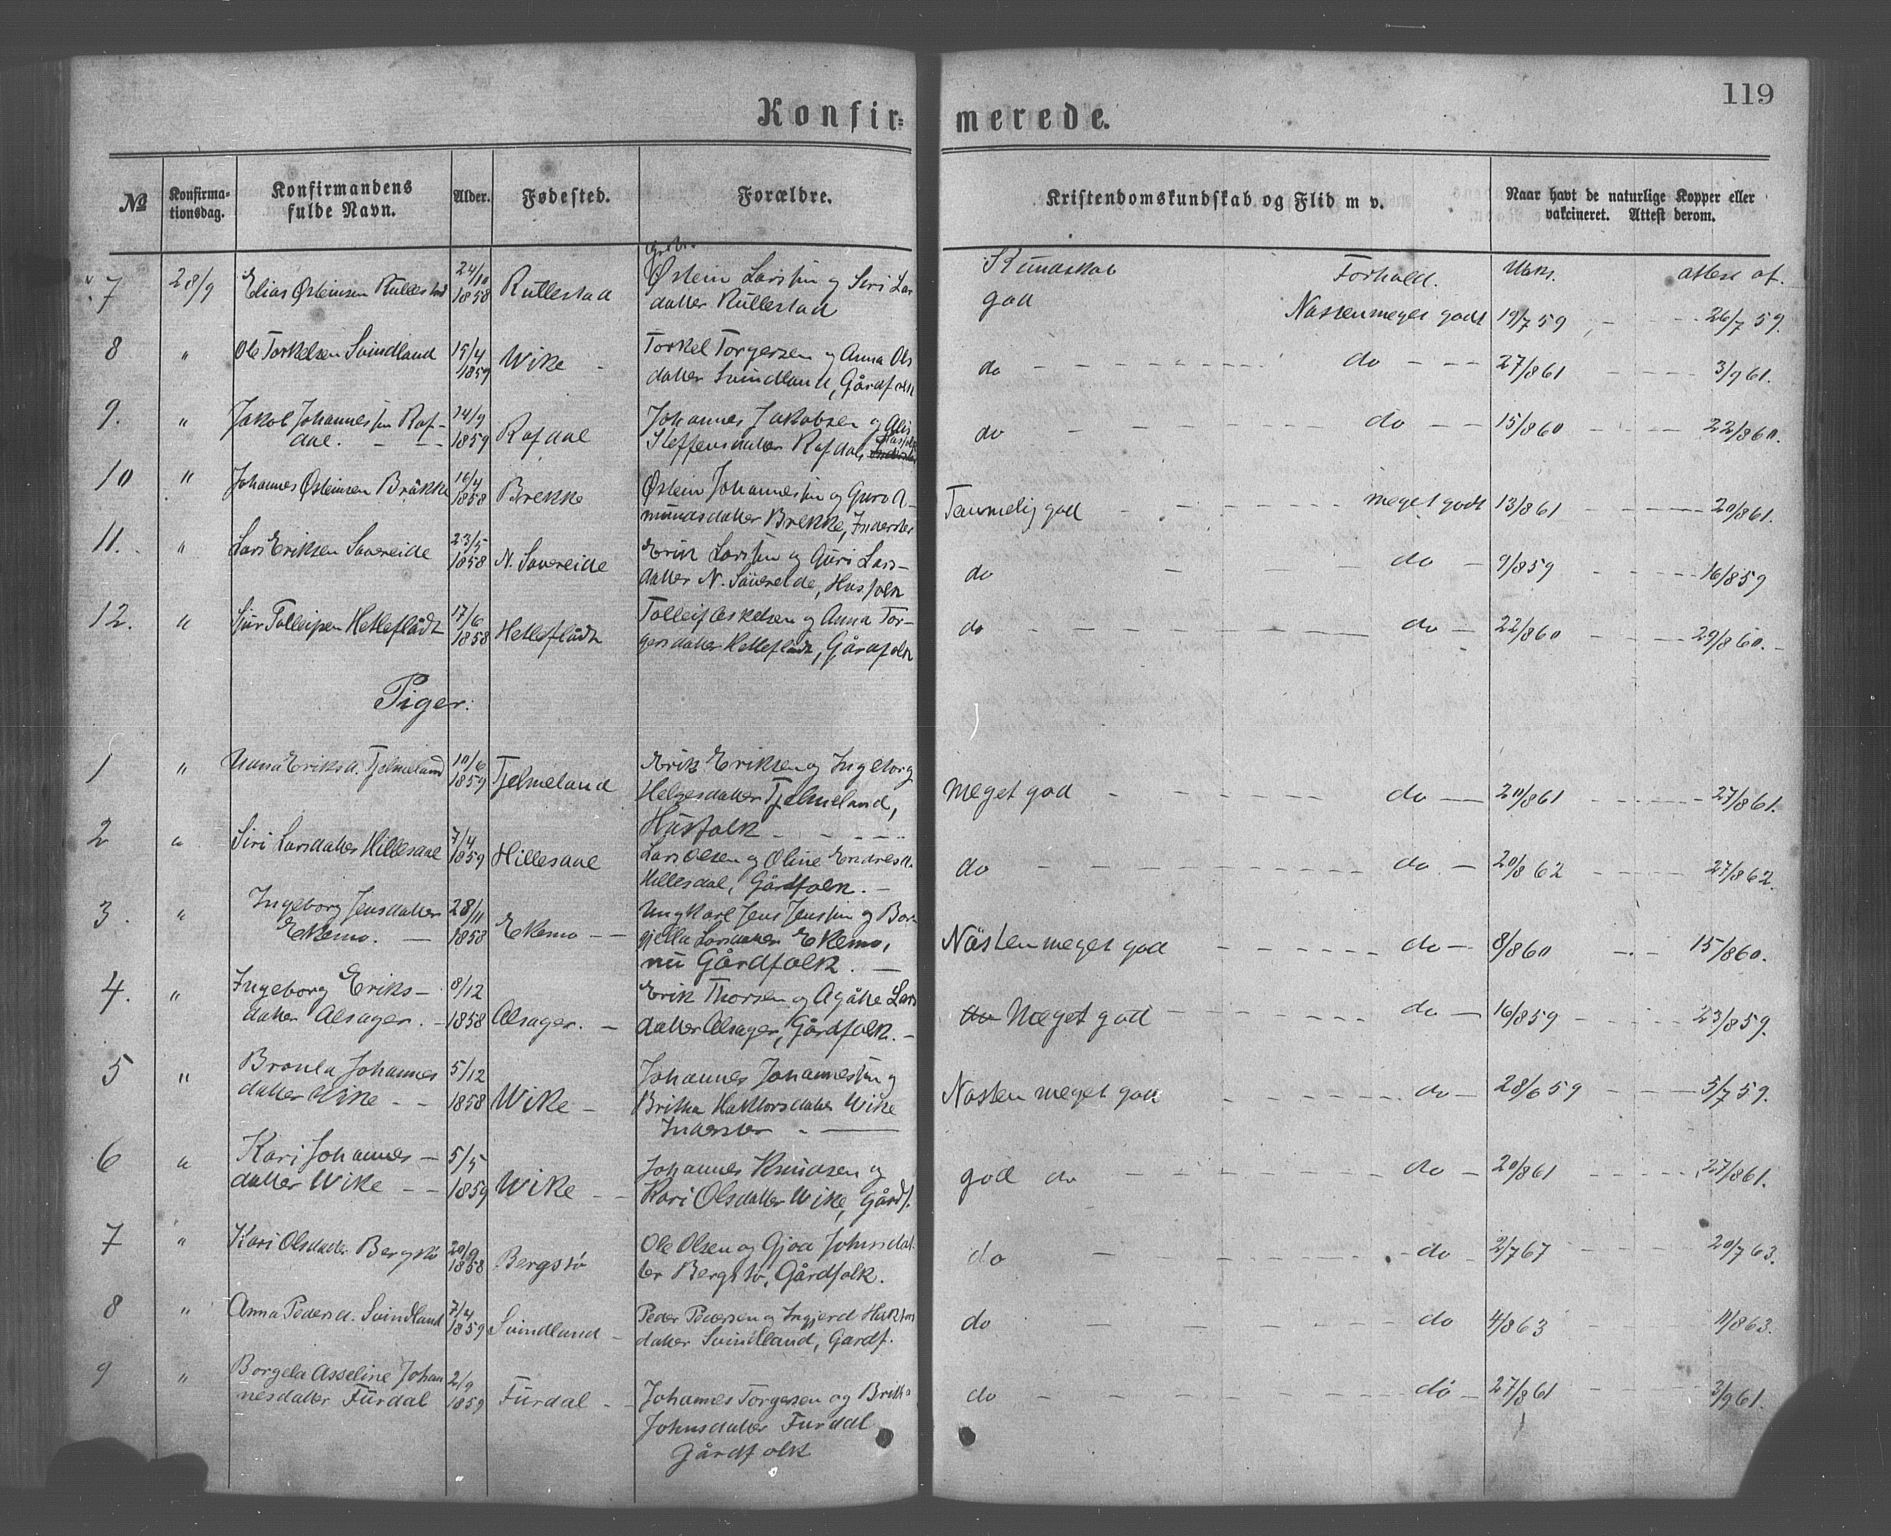 119
Konfir= merede.
№ Konfirma-tionsdag. Konfirmandens fulde Navn. Alder. Fødested. Forældre. Kristendomskundskab og Flid m v. Naar havt de naturlige Kopper eller vakcineret. Attest derom.
Kundskab Forhold. Vaks. attest af.
7 28/9 Elias Østeinsen Rullestad 24/10 1858 Rullestad Østein Larssøn og Siri Lars-
datter Rullestad god Næsten meget godt 19/7 59 26/7 59.
8 " Ole Torkelsen Svindland 15/4 1859 Wike Torkel Torgersen og Anna Ols
datter Svindland, Gårdfolk do do 27/8 61 3/9 61.
9. " Jakob Johannessøn Raf-
dal. 14/9 1859 Rafdal Johannes Jakobsen og
Steffensdatter Rafdal, do do 15/8 60 22/8 60.
10 " Johannes Østeinsen Bråkke 16/4 1858 Brekke Østein Johannessøn og Guro A-
mundsdatter Brekke, Inderster Temmelig god meget godt 13/8 61 20/8 61.
11. " Lars Eriksen Savereide 23/5 1858 N. Savereide Erik Larssøn og Guri Lars-
datter N. Savereide, Husfolk do do 9/8 59 16/8 59
12. " Sjur Tolleifsen Hetleflådt 17/6 1858 Hetleflådt Tolleif Askelsen og Anna Tor-
gersdatter Hetleflådt, Gårdfolk do do 22/8 60 29/8 60.
Piger:
1 " Anna Eriksd. Tjelmeland 10/6 1859 Tjelmeland Erik Eriksen og Ingeborg
Helgesdatter Tjelmeland,
Husfolk Meget god do 20/8 61 27/8 61.
2 " Siri Larsdatter Hillesdal 7/4 1859 Hillesdal Lars Olsen og Oline Endresd.
Hillesdal, Gårdfolk. do do 20/8 62 27/8 62.
3. " Ingeborg Jensdatter
Ekemo. 28/11 1858 Ekemo Ungkarl Jens Jenssøn og Bor-
gjella Larsdatter Ekemo,
nu Gårdfolk. Næsten meget god do 8/8 60 15/8 60.
4. " Ingeborg Eriks-
datter Alsager. 8/12 1858 Alsager. Erik Thorsen og Agåthe Lars
datter Alsager, Gårdfolk. do Meget god do 16/8 59 23/8 59.
5 " Johannes
datter Wike 5/12 1858 Wike Johannes Johannessøn og
Britha Haktorsdatter Wike
Inderster Næsten meget god do 28/6 59 5/7 59.
6 " Kari Johannes-
datter Wike 5/5 1859 Wike Johannes Knudsen og
Kari Olsdatter Wike, Gårdf. god do do 20/8 61 27/8 61.
7 " Kari Olsdatter Bergstø 20/9 1858 Bergstø Ole Olsen og Gjoa Johnsdat
ter Bergstø, Gårdfolk. do do 2/7 67 20/7 63.
8 " Anna Pedersd. Svindland 7/4 1859 Svindland Peder Pedersen og Ingjerd Haktors
datter Svindland, Gardf. do do 4/8 63 11/8 63.
9 " Borgela Asseline Johan
nesdatter Furdal 2/9 1859 Furdal Johannes Torgersen og Britha
Johnsdatter Furdal
Gårdfolk do do 27/8 61 3/9 61.